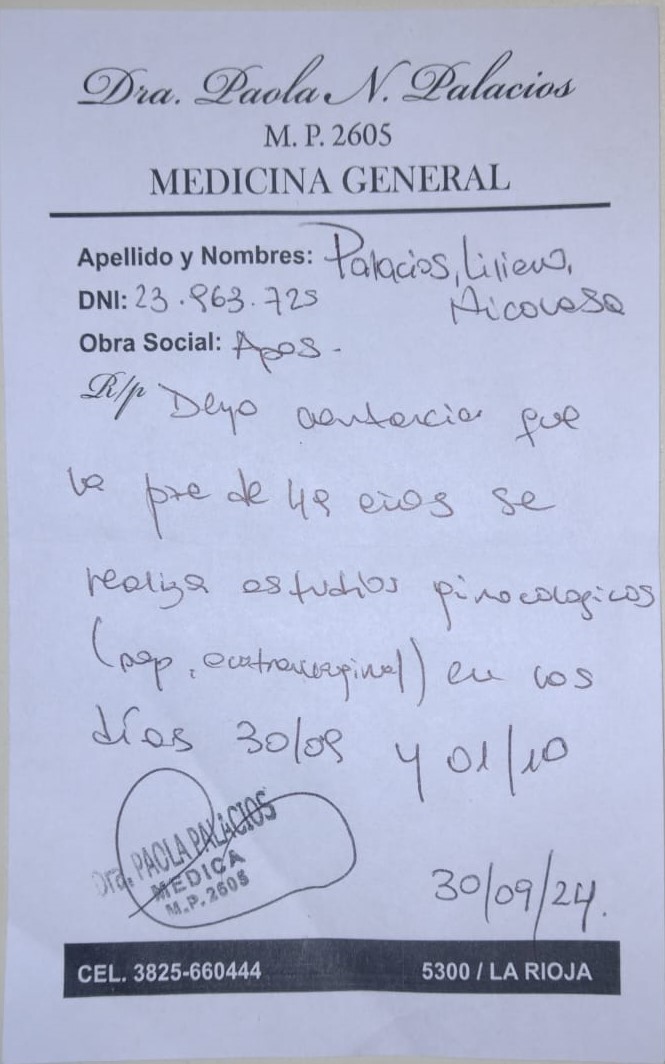 Dra. Paola N. Palacios
M. P. 2605
MEDICINA GENERAL
Apellido y Nombres: Palacios, Liliana,
DNI: 23.963.725 Nicolasa
Obra Social: Apos-
R/p Dejo constancia que
la pte de 49 años se
realiza estudios ginecologicos
(pap, ecotransvaginal) en los
días 30/09 y 01/10
Dra. PAOLA PALACIOS
MEDICA
M.P. 2605
30/09/24.
CEL. 3825-660444 5300 / LA RIOJA